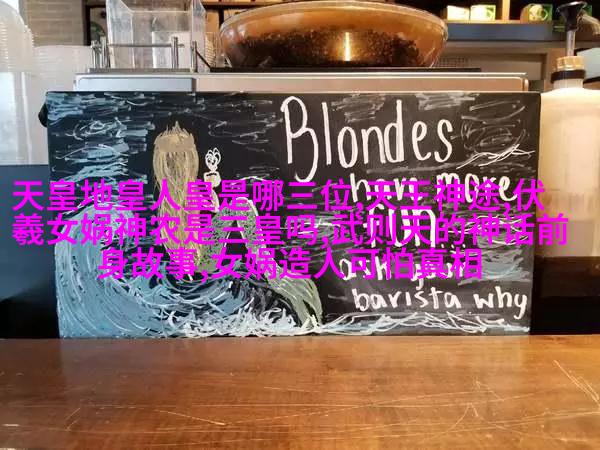 Blondes
have more
FUN!
barista why
天皇地皇人皇是哪三位,天王神途,伏
羲女娲神农是三皇吗,武则天的神话前
身故事,女娲造人可怕真相